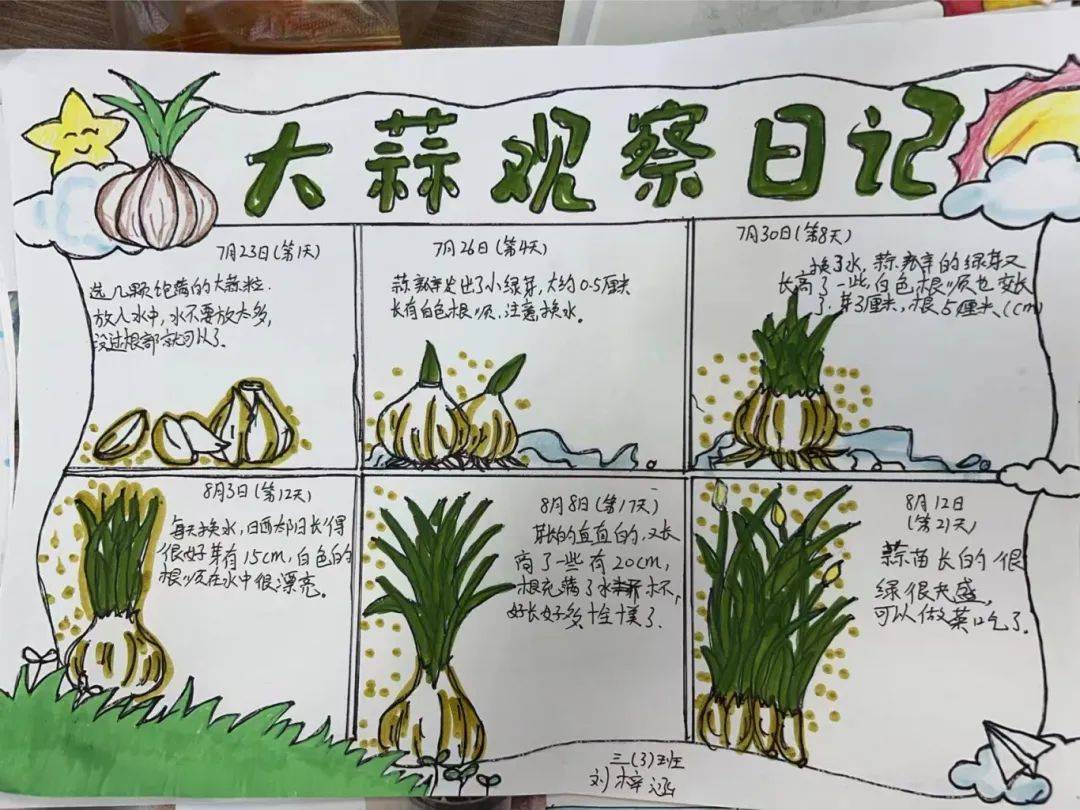 大蒜观察日记
7月23日(第1天)
选几颗饱满的大蒜粒.
放入水中,水不要放太多,
没过根部就可以了.
7月26日(第4天)
蒜瓣发出了小绿芽,大约0.5厘米
长有白色根须,注意换水。
7月30日(第8天)
换了水,蒜瓣的绿芽又
长高了一些,白色根须也变长
了.芽3厘米,根5厘米(cm)
8月3日(第12天)
每天换水,
很好芽有15cm,白色的
根须在水中很漂亮。
8月8日(第17天)
芽长的直直的,又长
高了一些有20cm,
根充满了水杯,
好长好多
8月12日
(第21天)
蒜苗长的很
绿很茂盛,
可以做菜吃了.
三(3)班
刘梓涵